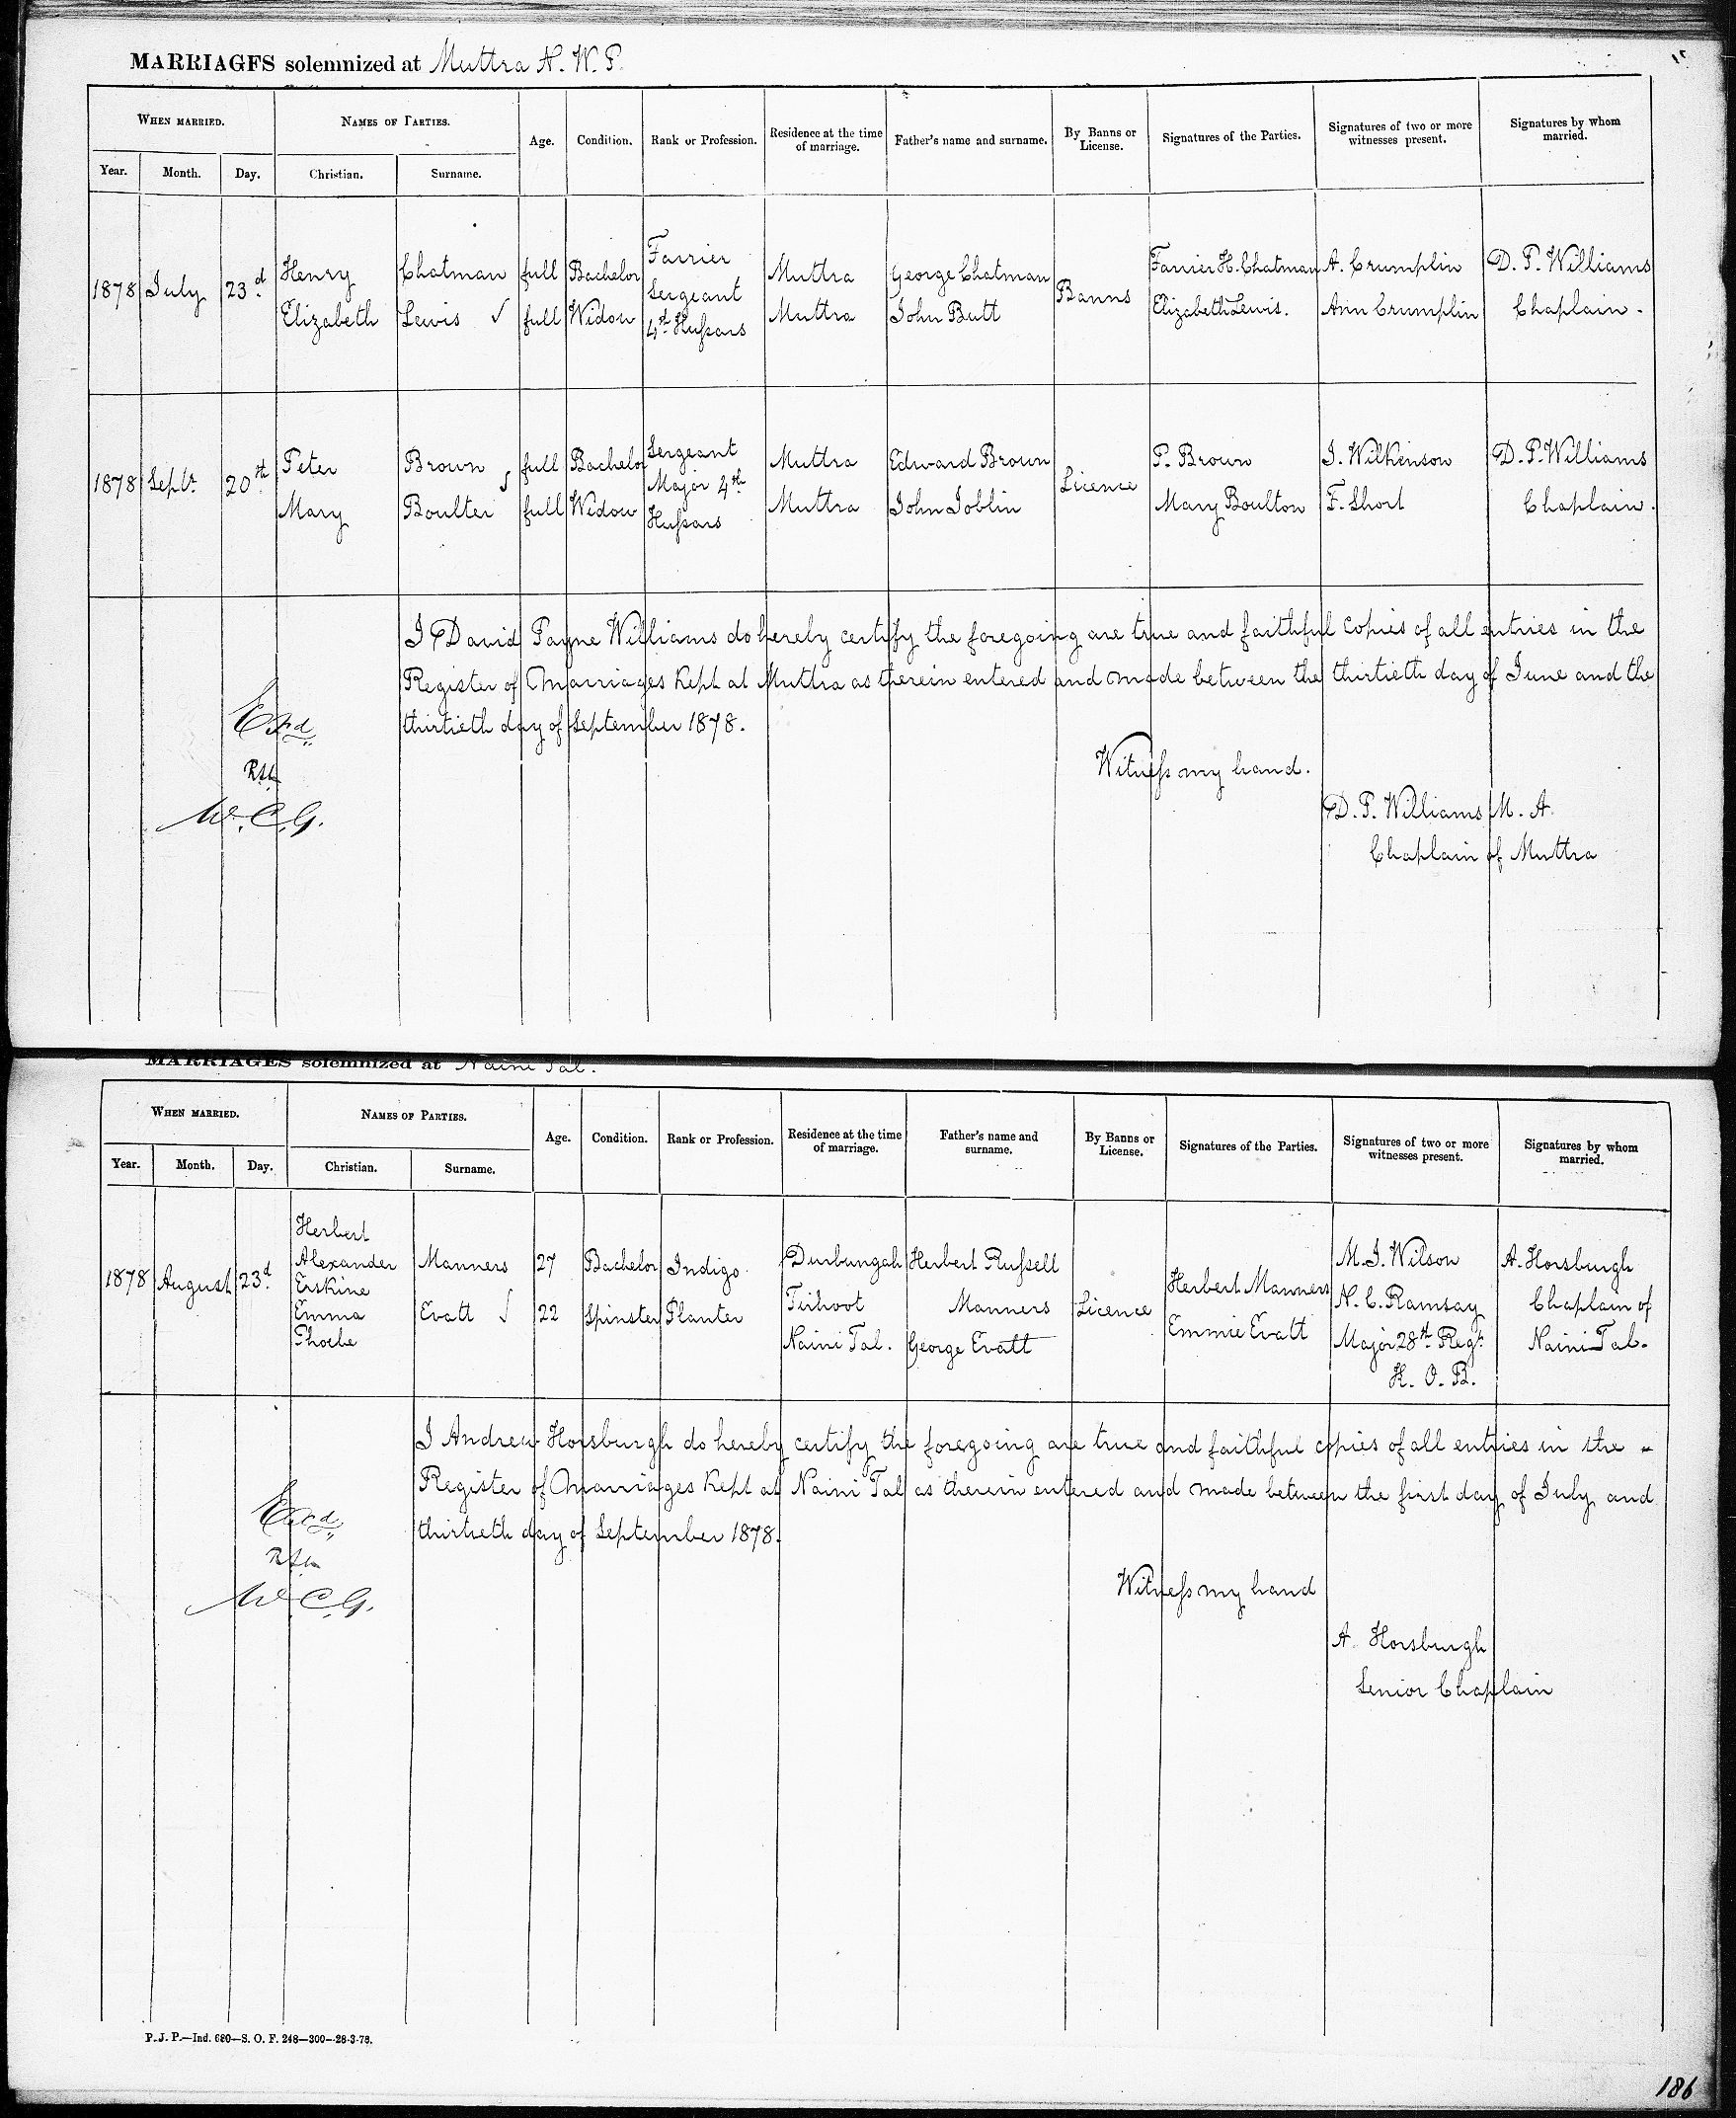 MARRIAGES solemnized at Muttra N. W. P.
WHEN MARRIED. NAMES OF PARTIES. Age. Condition. Rank or Profession. Residence at the time of marriage. Father's name and surname. By Banns or License. Signatures of the Parties. Signatures of two or more witnesses present. Signatures by whom married.
Year. Month. Day. Christian. Surname.
1878 July 23d Henry Chatman full Bachelor Farrier Sergeant 4th Hussars Muttra George Chatman Banns Farrier H. Chatman A. Crumplin D. P. Williams
Elizabeth Lewis full Widow Muttra John Butt Elizabeth Lewis. Ann Crumplin Chaplain.
1878 Septr 20th Peter Brown full Bachelor Sergeant Major 4th Hussars Muttra Edward Brown Licence P. Brown J. Wilkenson D. P. Williams
Mary Boulter full Widow Muttra John Joblin Mary Boulton F. Short Chaplain.
I David Payne Williams do hereby certify the foregoing are true and faithful copies of all entries in the
Register of Marriages kept at Muttra as therein entered and made between the thirtieth day of June and the
thirtieth day of September 1878.
Exd
Witness my hand.
W. C. G.
D. P. Williams M. A.
Chaplain of Muttra
MARRIAGES solemnized at Naini Tal.
WHEN MARRIED. NAMES OF PARTIES. Age. Condition. Rank or Profession. Residence at the time of marriage. Father's name and surname. By Banns or License. Signatures of the Parties. Signatures of two or more witnesses present. Signatures by whom married.
Year. Month. Day. Christian. Surname.
1878 August 23d Herbert Alexander Erskine Manners 27 Bachelor Indigo Planter Durbungah Tirhoot Herbert Russell Manners Licence Herbert Manners M. J. Wilson A. Horsburgh
Emma Phoebe Evatt 22 Spinster Naini Tal. George Evatt Emmie Evatt N. C. Ramsay Major 28th Regt. H. O. B. Chaplain of Naini Tal.
I Andrew Horsburgh do hereby certify the foregoing are true and faithful copies of all entries in the
Register of Marriages kept at Naini Tal as therein entered and made between the first day of July and
thirtieth day of September 1878.
Exd
Witness my hand
W. C. G.
A. Horsburgh
Senior Chaplain
P. J. P.—Ind. 680—S. O. F. 248—300—28-3-78.
186